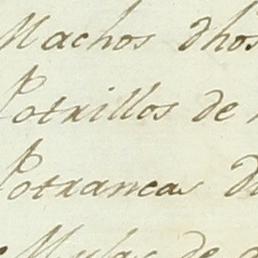 Machos dhos
Potrillos de
Potrancas d
Mulas de